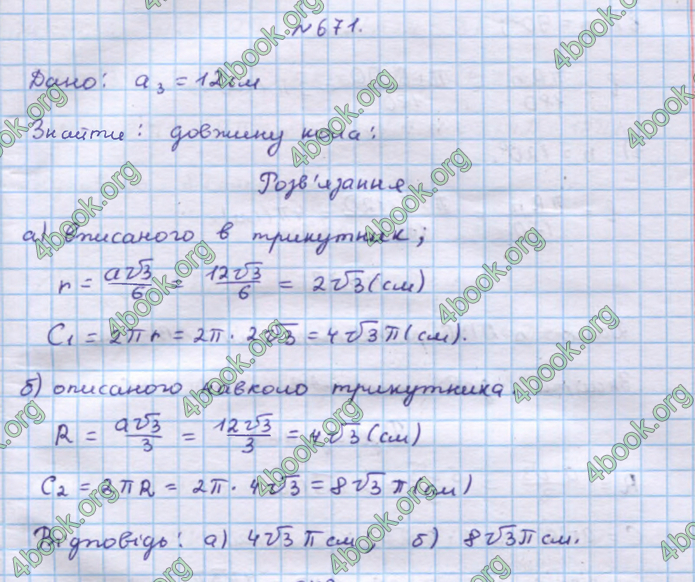 №671.
Дано: a₃ = 12см
Знайти: довжину кола:
Розв'язання
а) вписаного в трикутник;
r = a√3/6 = 12√3/6 = 2√3 (см)
C₁ = 2πr = 2π · 2√3 = 4√3 π (см).
б) описаного навколо трикутника.
R = a√3/3 = 12√3/3 = 4√3 (см)
C₂ = 2πR = 2π · 4√3 = 8√3 π (см)
Відповідь: а) 4√3 π см; б) 8√3 π см.
4book.org